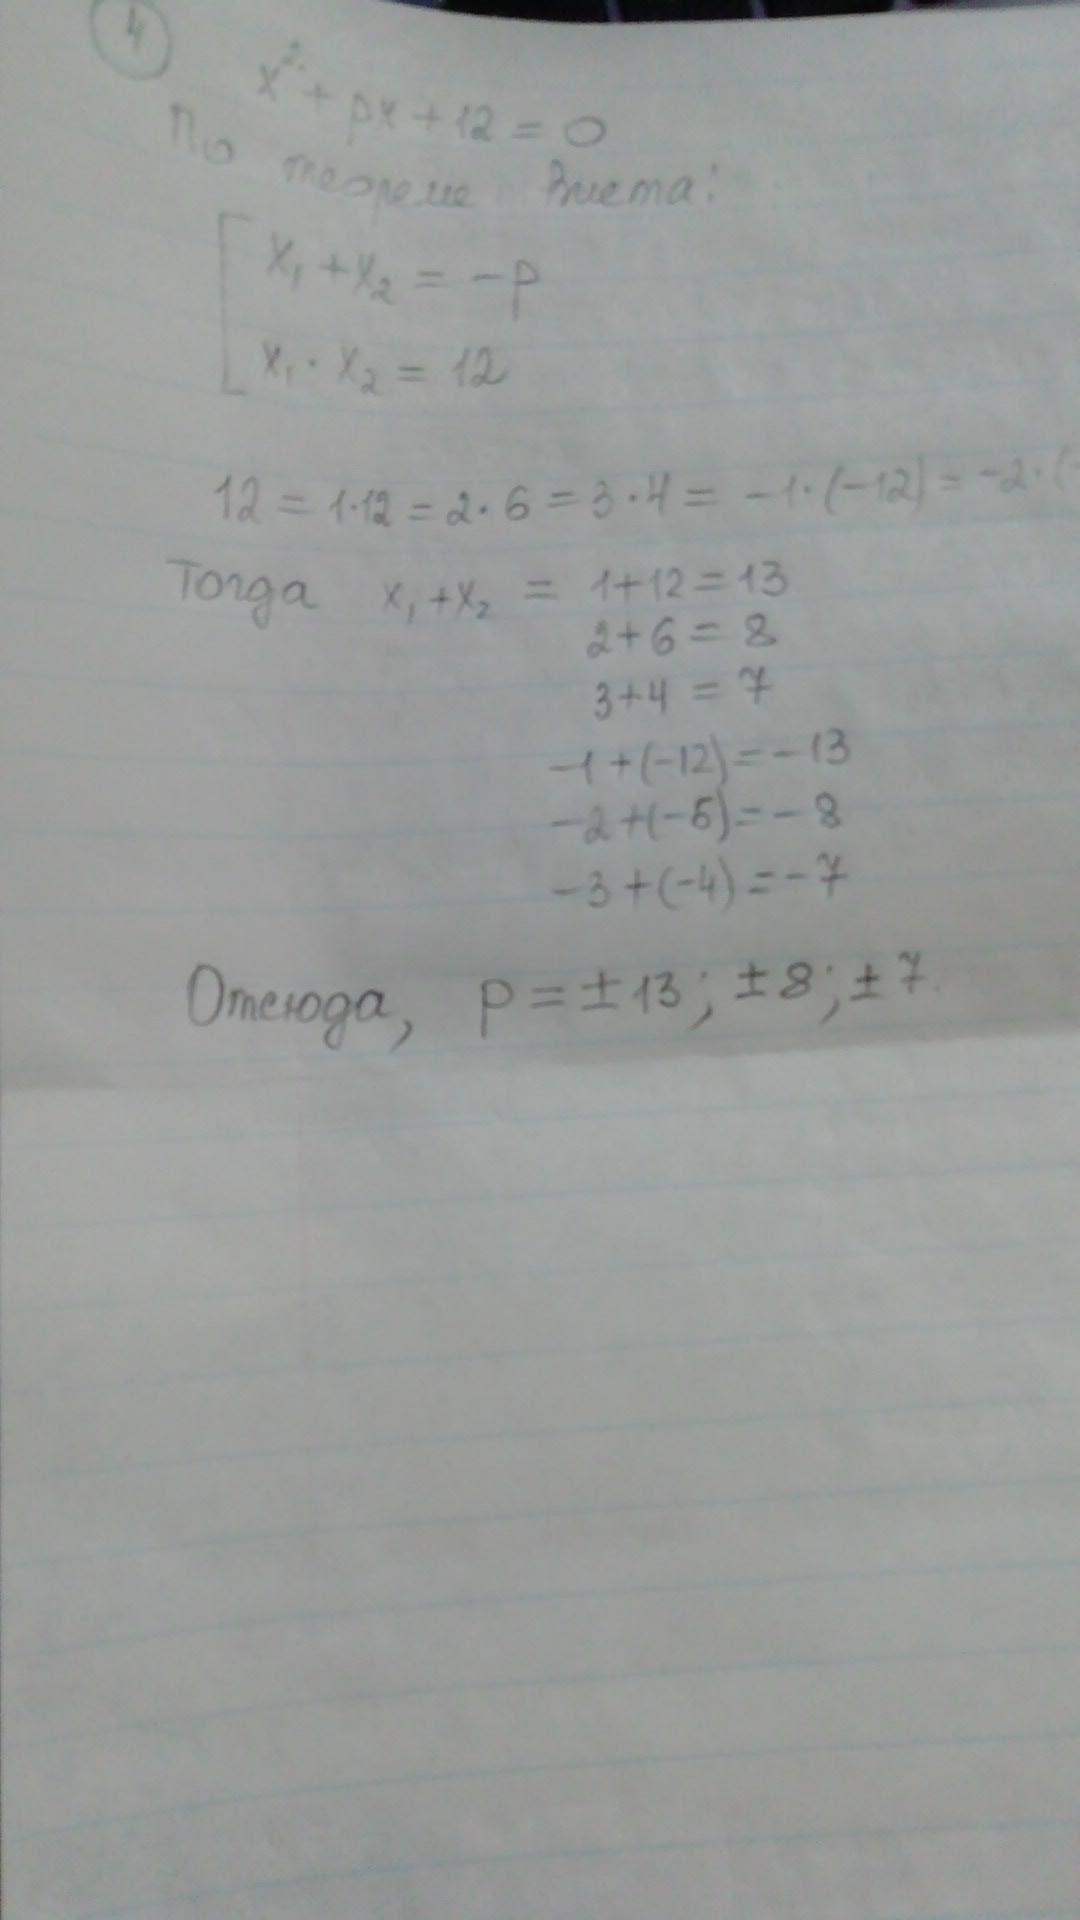 4
x² + px + 12 = 0
По теореме Виета:
x₁ + x₂ = -p
x₁ · x₂ = 12
12 = 1·12 = 2·6 = 3·4 = -1·(-12) = -2·(-
Тогда x₁ + x₂ = 1+12 = 13
2+6 = 8
3+4 = 7
-1+(-12) = -13
-2+(-6) = -8
-3+(-4) = -7
Отсюда, p = ±13; ±8; ±7.